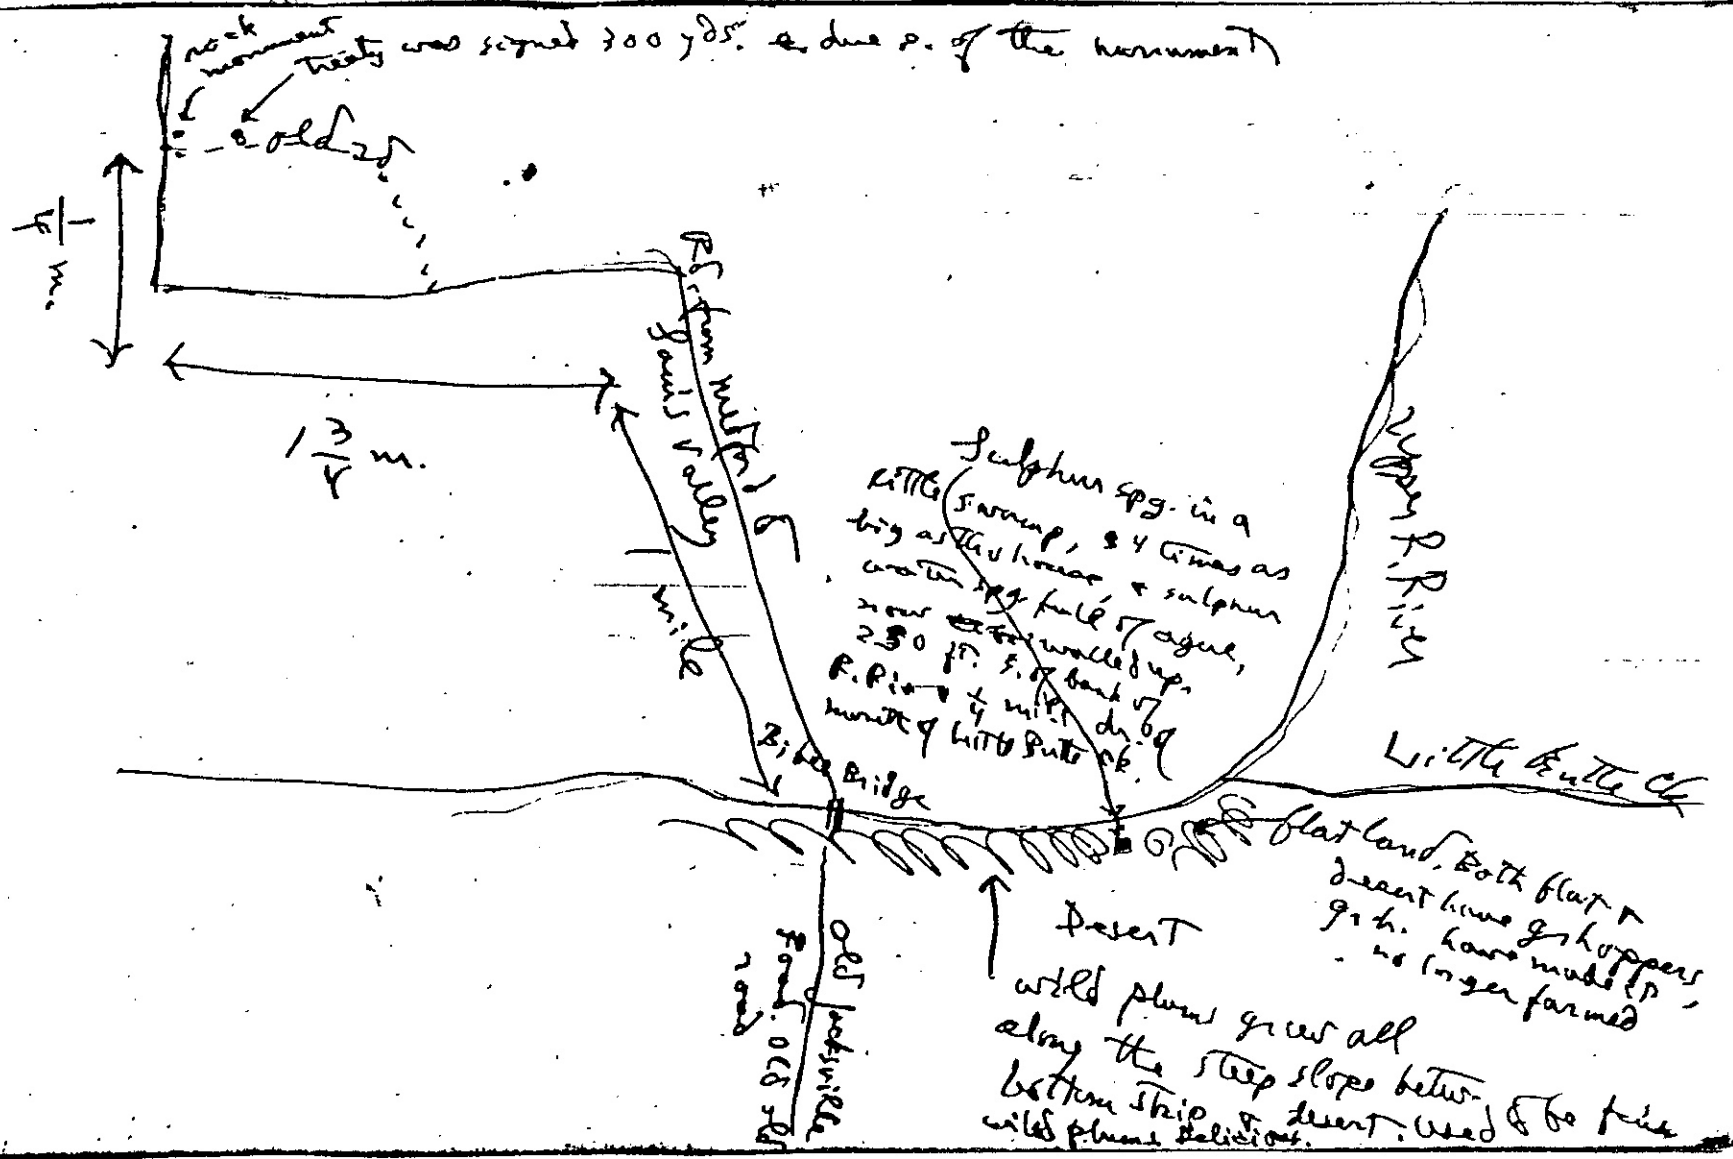 rock
monument
treaty was signed 300 yds. e. due e. of the monument
old rd
1/4 m.
1 3/4 m.
Rd. from Medford to
Sams Valley
1
mile
Sulphur spg. in a
little swamp, 34 times as
big as this house, & sulphur
water spg. full of ague,
now walled up,
250 ft. s. of bank of
R. River & 1/4 mile dn. of
mouth of Little Butte Ck.
Upper R. River
Bibee Bridge
Little Butte Ck
flat land. Both flat &
desert have g-hoppers,
g-h. have made it
no longer farmed
Desert
wild plums grew all
along the steep slope betw.
bottom strip & desert. Used to be fine
wild plums delicious.
Old Jacksville
Road. Old old
road